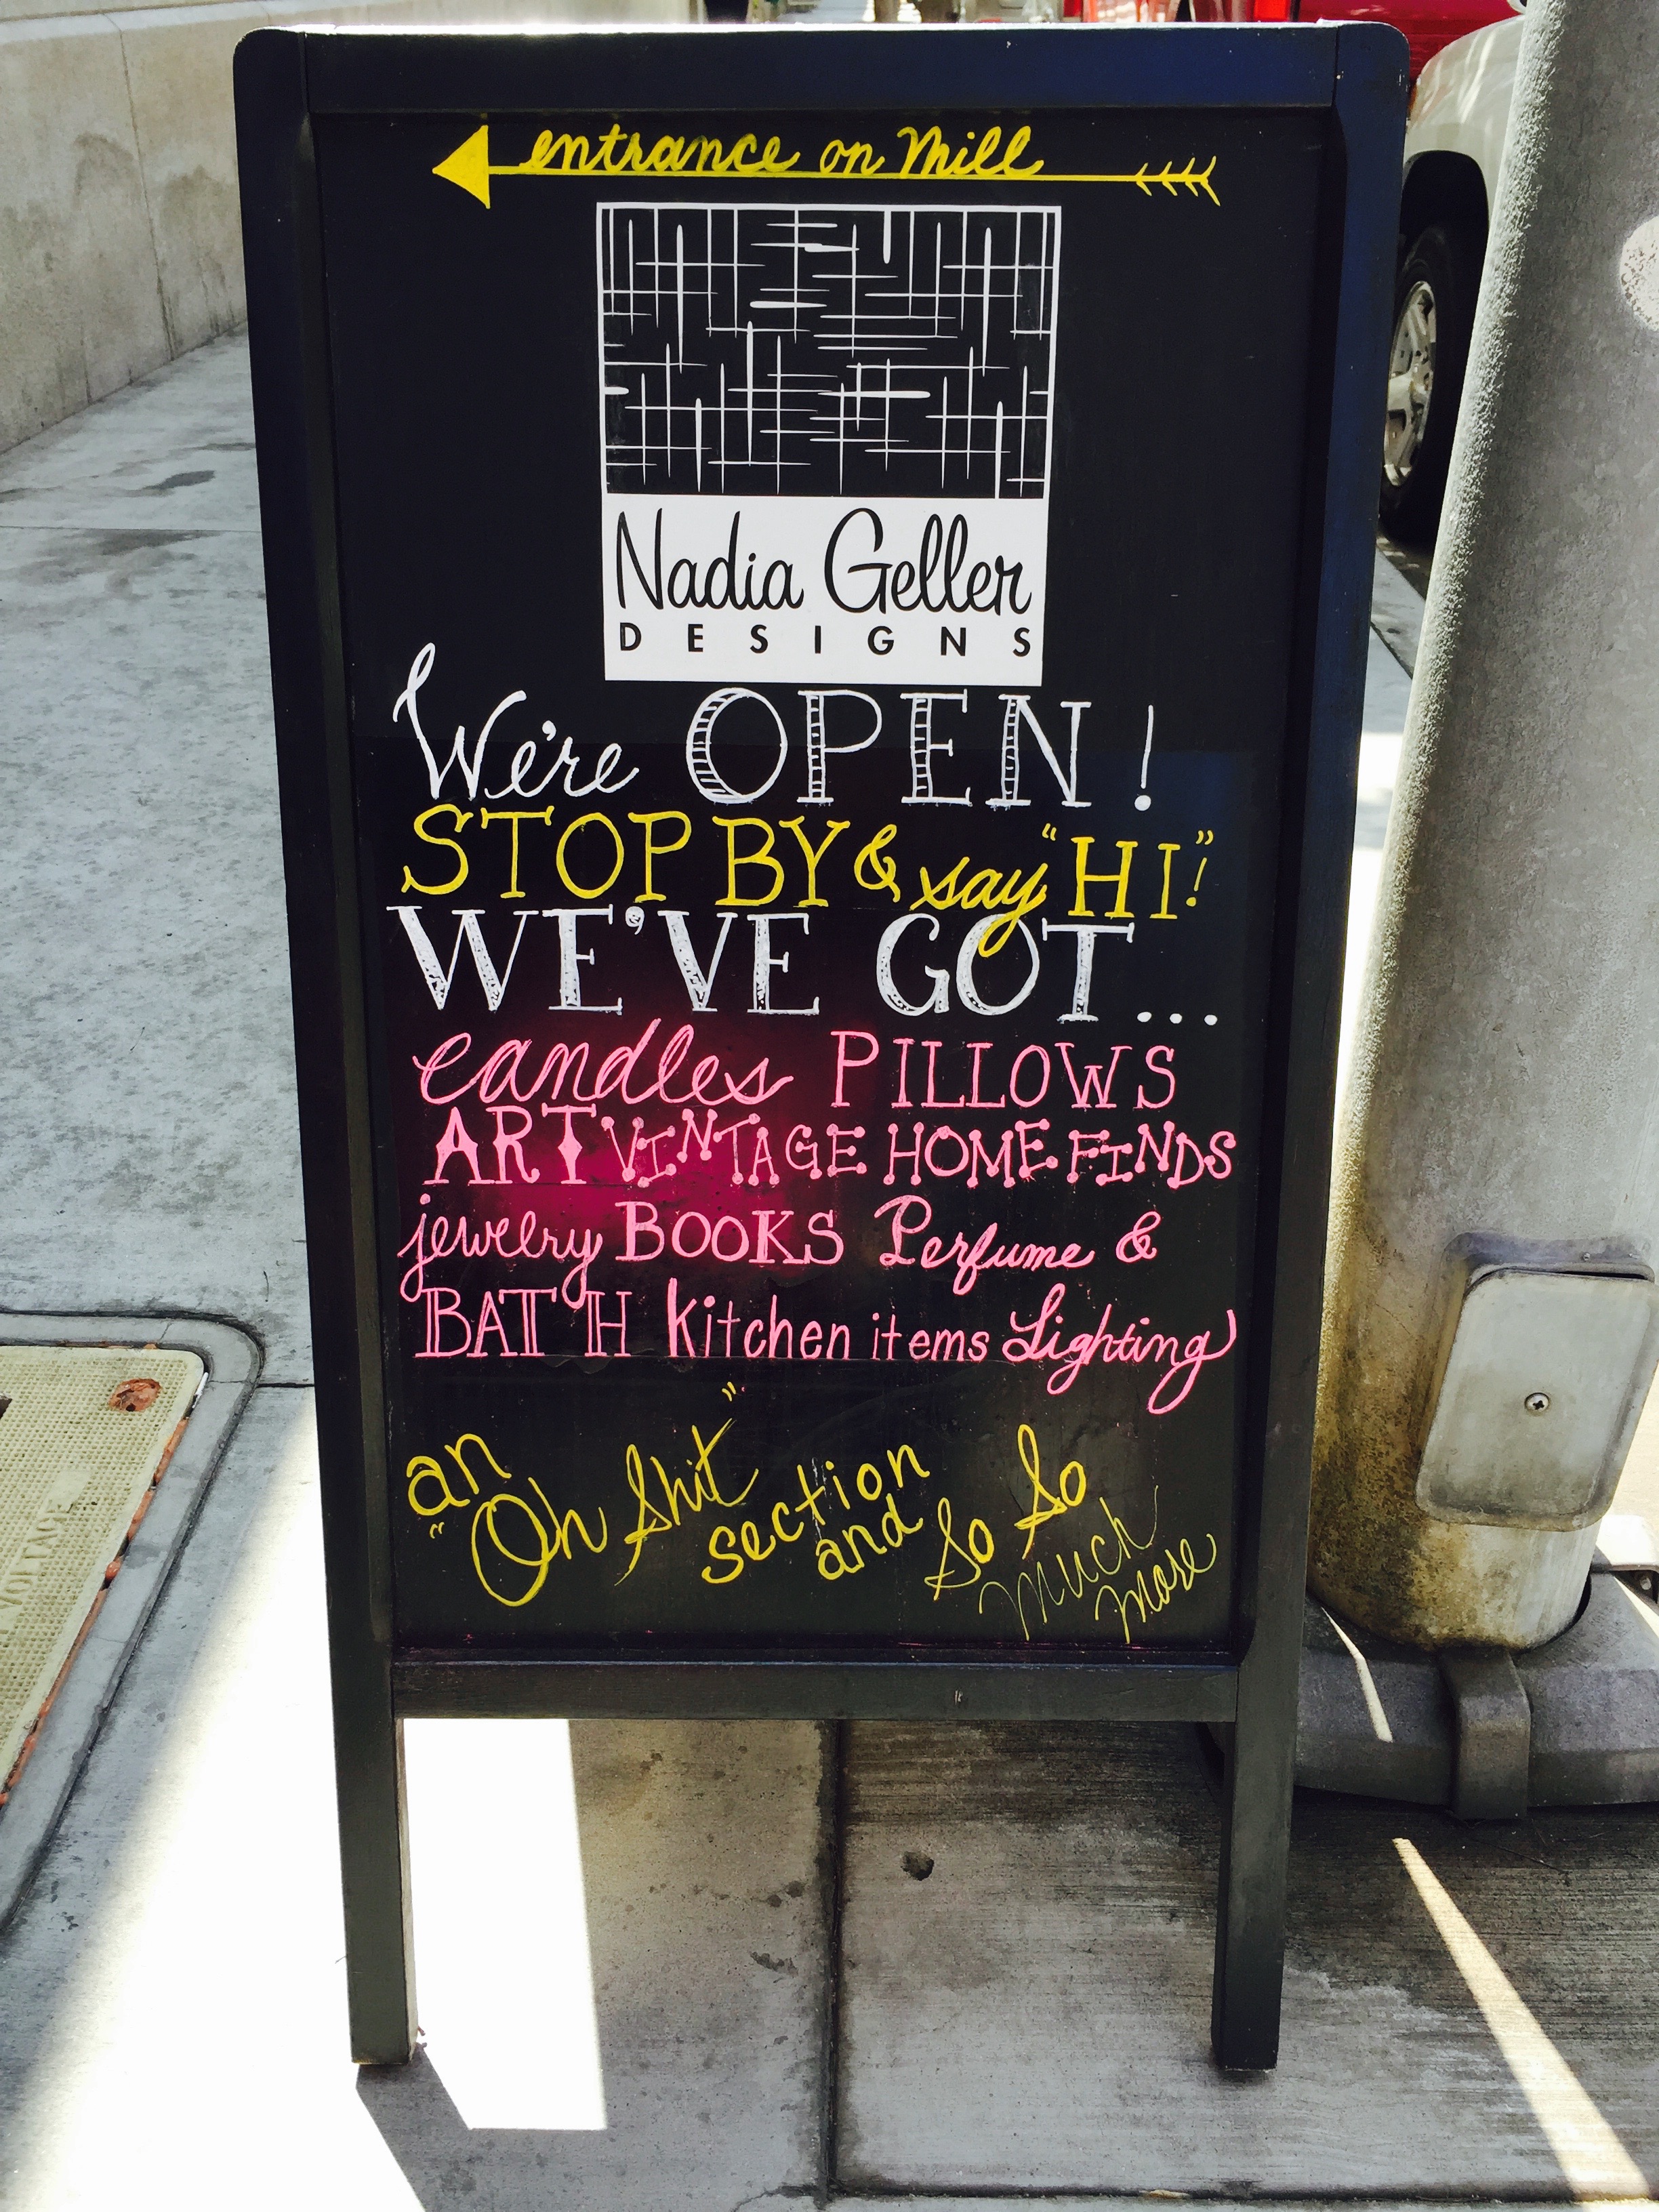 entrance on Mill
Nadia Geller
DESIGNS
We're OPEN!
STOP BY & say "HI!"
WE'VE GOT...
candles PILLOWS
ART VINTAGE HOME FINDS
jewelry BOOKS Perfume &
BATH kitchen items Lighting
an
"Oh Shit"
section
and So So
much
more
VOLTAGE